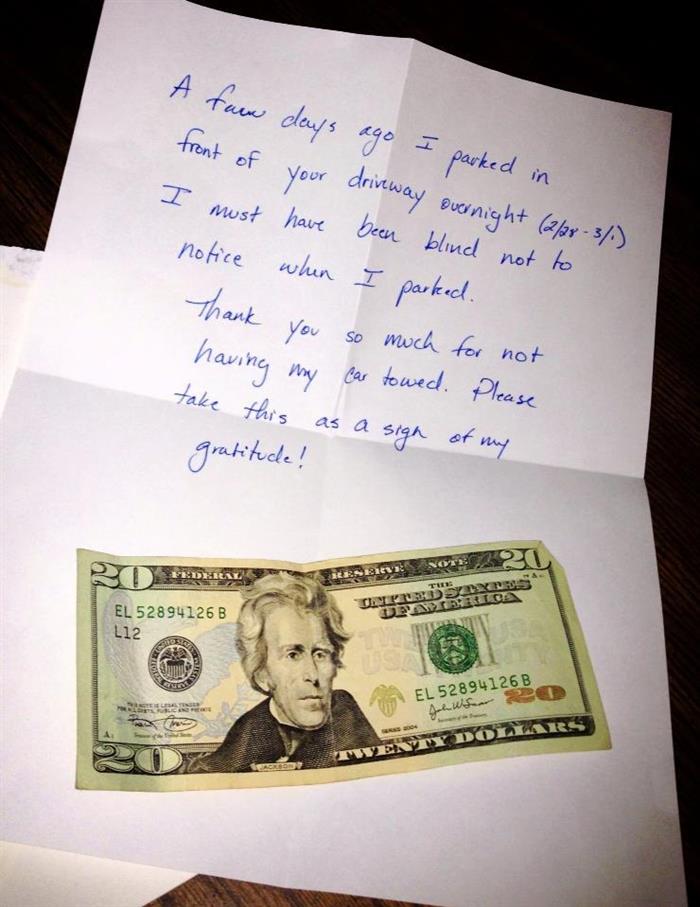 A few days ago I parked in
front of your driveway overnight (2/28 - 3/1)
I must have been blind not to
notice when I parked.
Thank you so much for not
having my car towed. Please
take this as a sign of my
gratitude!
20 FEDERAL RESERVE NOTE 20
THE
UNITED STATES
OF AMERICA
EL 52894126 B
L12
THIS NOTE IS LEGAL TENDER
FOR ALL DEBTS, PUBLIC AND PRIVATE
EL 52894126 B
20
Treasurer of the United States
Secretary of the Treasury
SERIES 2004
20 JACKSON TWENTY DOLLARS